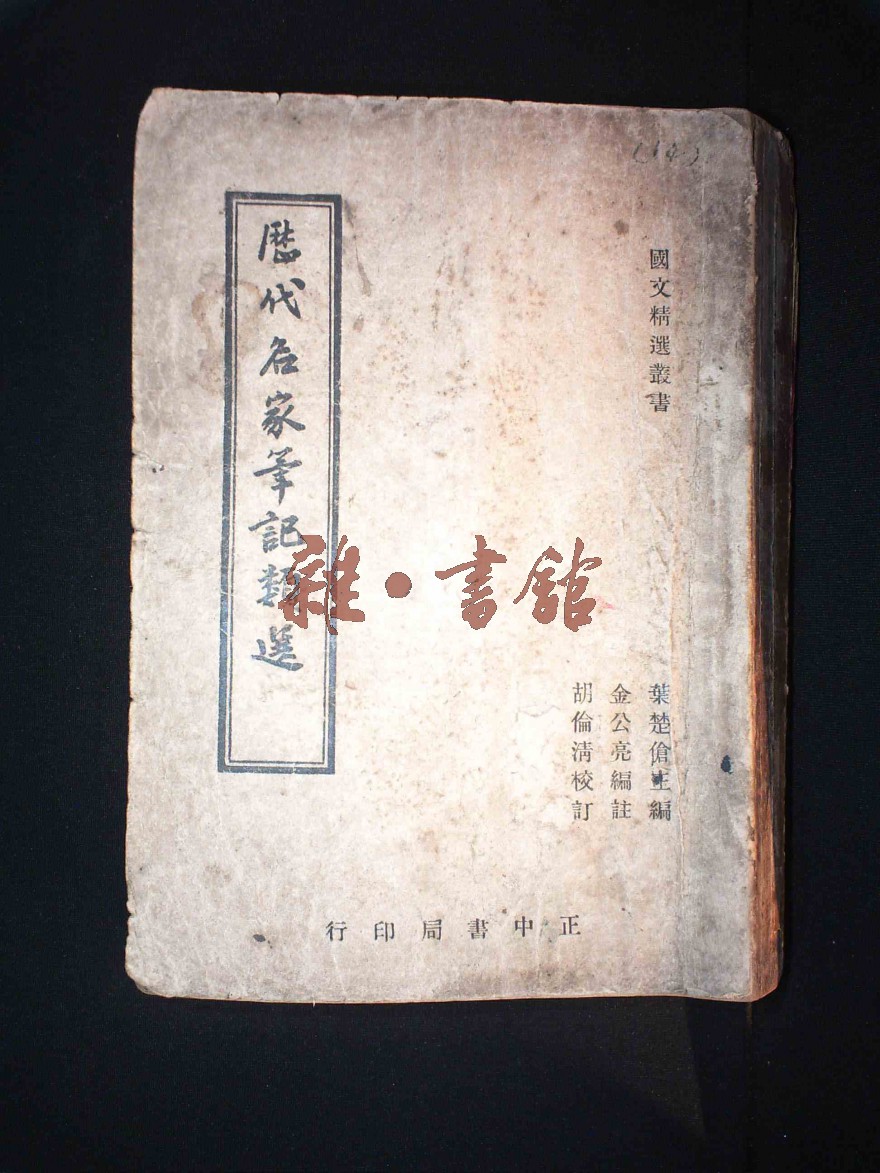 (14)
國文精選叢書
葉楚傖主編
金公亮編註
胡倫清校訂
歷代名家筆記類選
正中書局印行
雜·書館